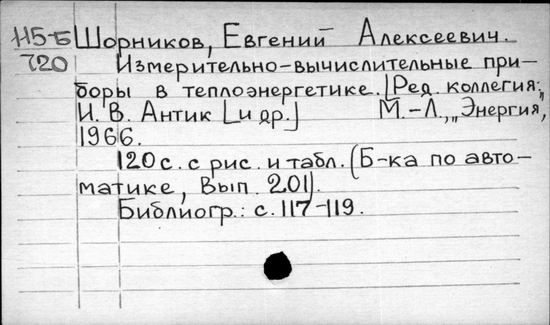 115-Б Шорников, Евгений Алексеевич.
720 Измерительно-вычислительные при-
боры в теплоэнергетике. [Ред. коллегия:
И. В. Антик [и др.] М.-Л., „Энергия,"
1966.
120 с. с рис. и табл. (Б-ка по авто-
матике, Вып. 201).
Библиогр.: с. 117-119.